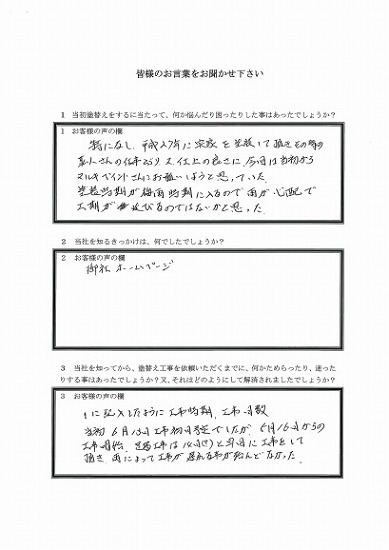 皆様のお言葉をお聞かせ下さい
1 当初塗替えをするに当たって、何か悩んだり困ったりした事はあったでしょうか?
1 お客様の声の欄
特になし、平成27年に実家を塗装して頂きその時の
職人さんの仕事ぶり、又、仕上の良さに、今回は当初から
マルキペイントさんにお願いしようと思っていた。
塗装時期が梅雨時期に入るので雨が心配で
工期が延びるのではないかと思った。
2 当社を知るきっかけは、何でしたでしょうか?
2 お客様の声の欄
御社 ホームページ
3 当社を知ってから、塗替え工事を依頼いただくまでに、何かためらったり、迷った
りする事はあったでしょうか?又、それはどのようにして解消されましたでしょうか?
3 お客様の声の欄
1に記入したように工事時期、工事日数
当初 6月13日工事初日予定でしたが、6月16日からの
工事開始、足場工事は14日(土)と早目に工事をして
頂き、雨によって工事が遅れる事が殆んどなかった。